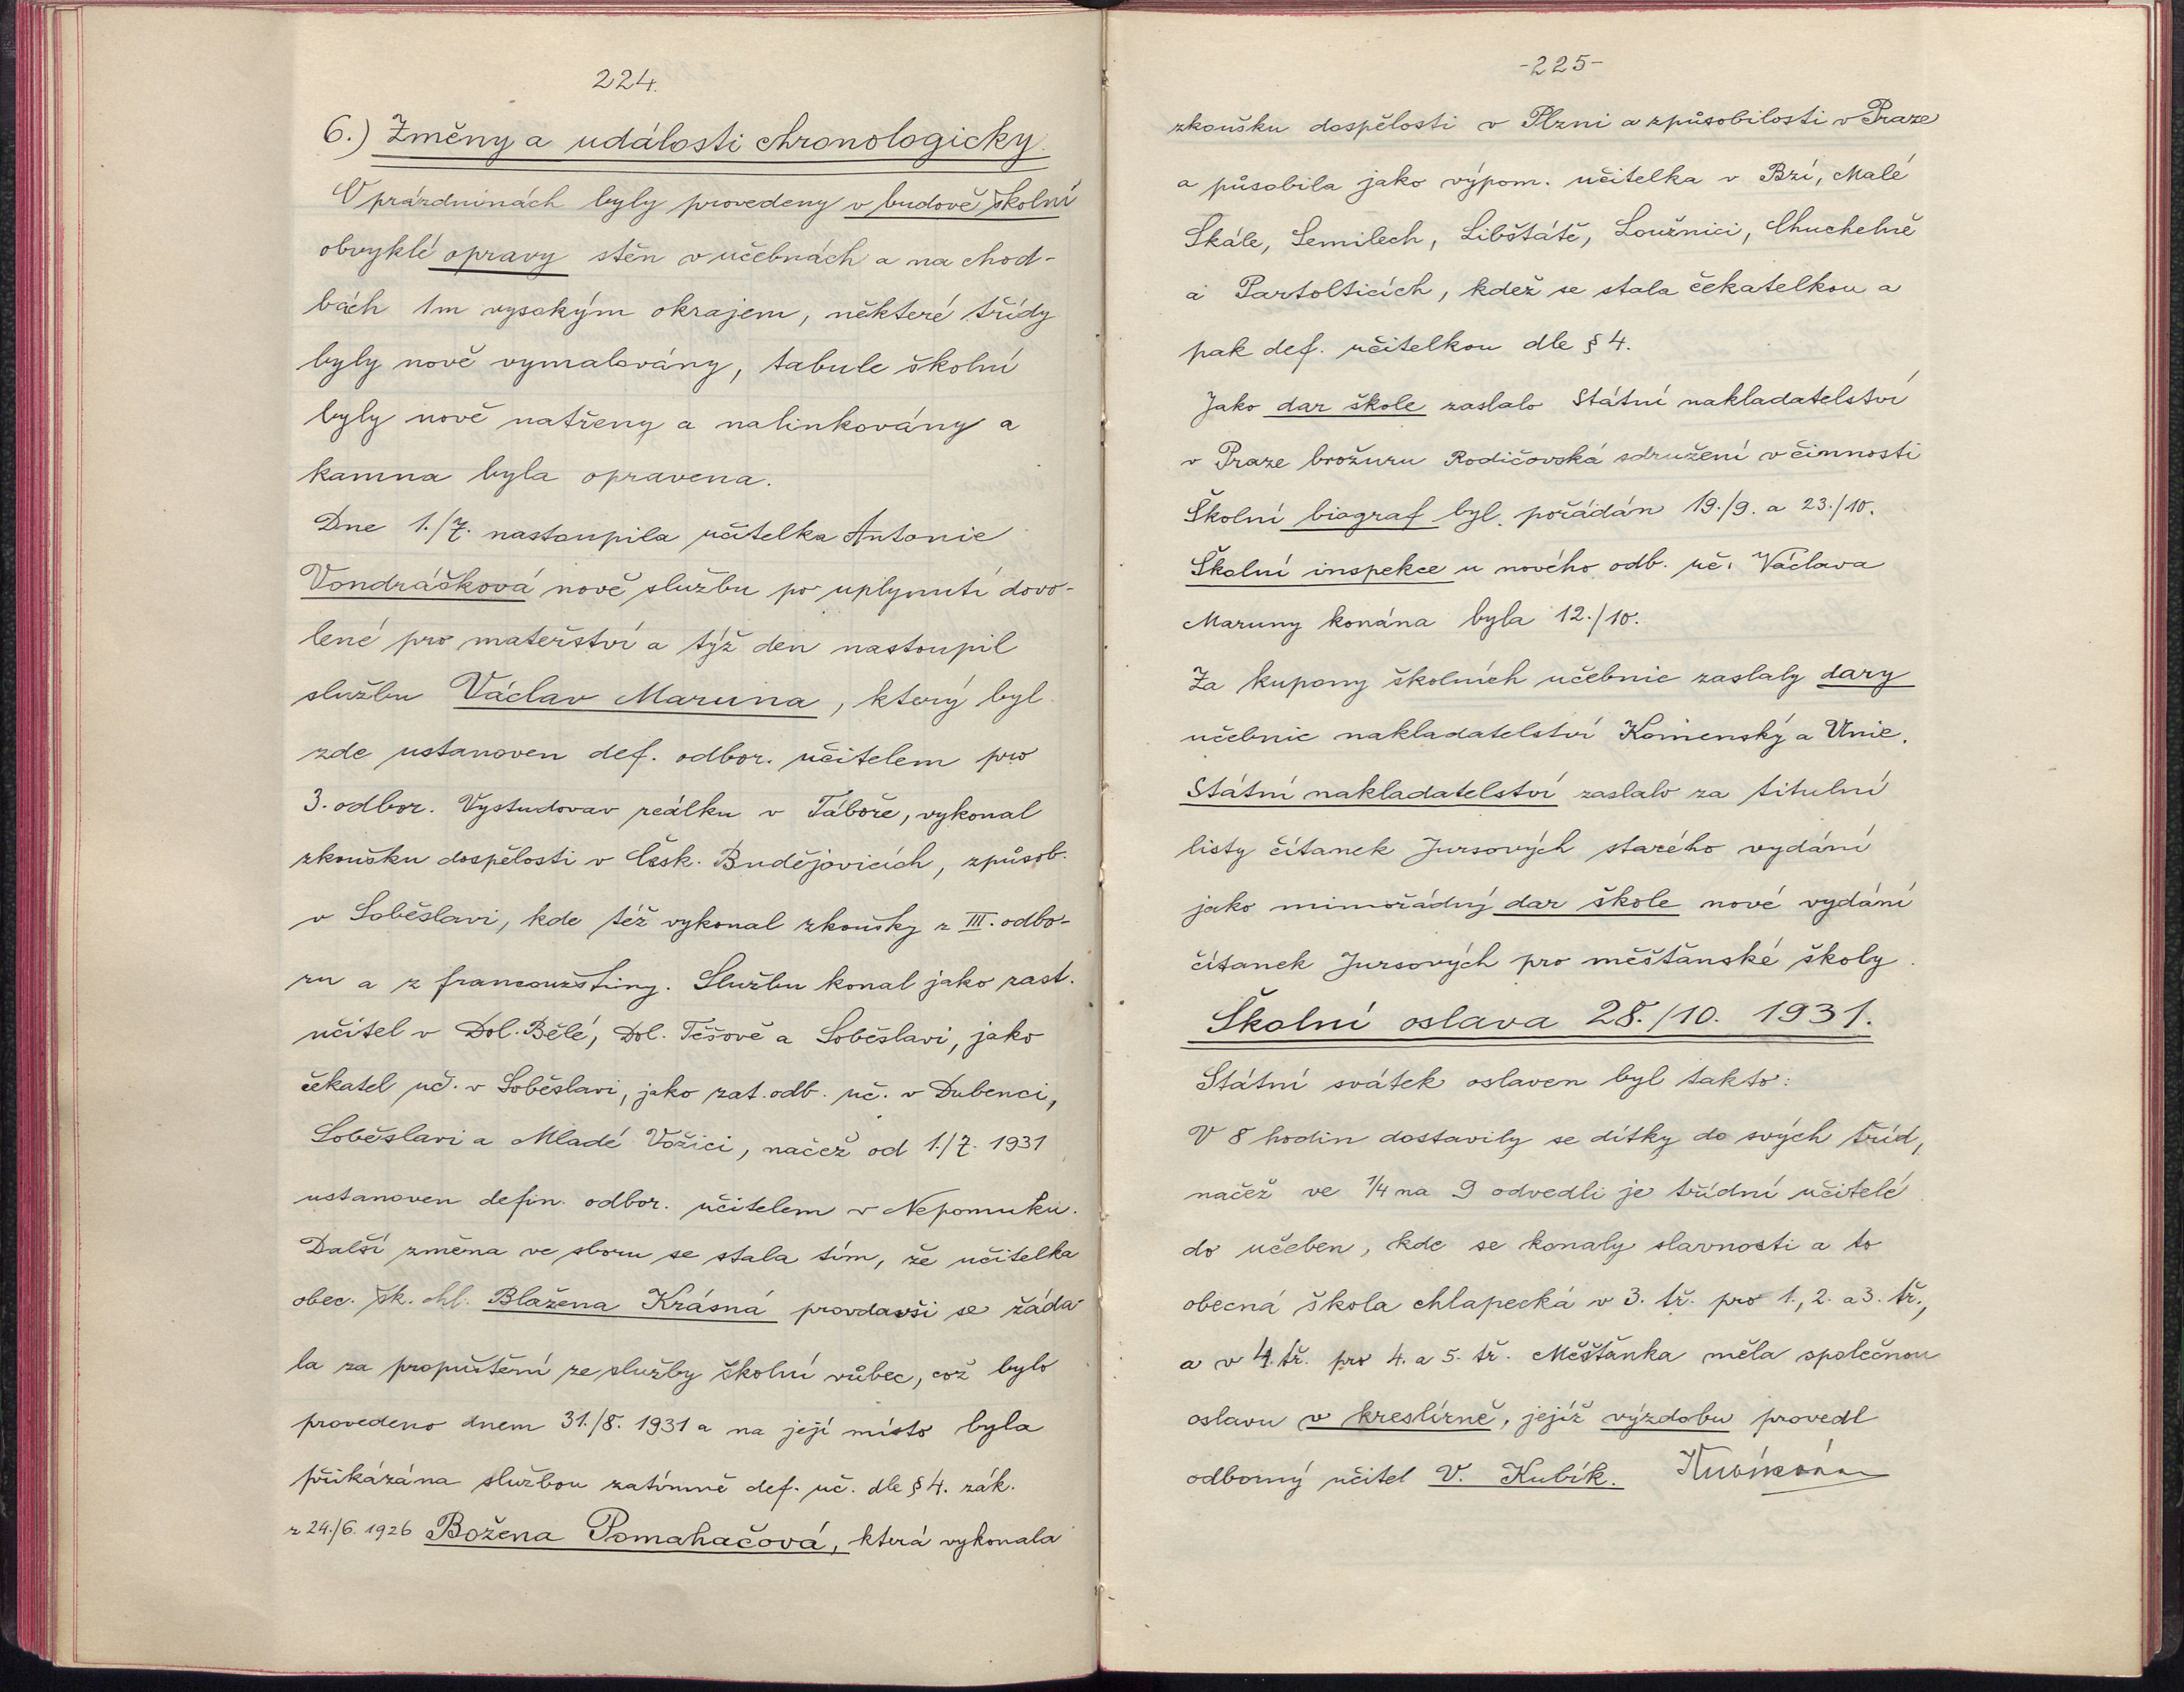 224.
6.) Změny a události chronologicky.
O prázdninách byly provedeny v budově školní
obvyklé opravy stěn v učebnách a na chod-
bách 1m vysokým okrajem, některé třídy
byly nově vymalovány, tabule školní
byly nově natřeny a nalinkovány a
kamna byla opravena.
Dne 1./7. nastoupila učitelka Antonie
Vondrášková nově službu po uplynutí dovo-
lené pro mateřství a týž den nastoupil
službu Václav Maruna, který byl
zde ustanoven def. odbor. učitelem pro
3. odbor. Vystudovav reálku v Táboře, vykonal
zkoušku dospělosti v Česk. Budějovicích, způsob.
v Soběslavi, kde též vykonal zkoušky z III. odbo-
ru a z francouzštiny. Službu konal jako zast.
učitel v Dol. Bělé, Dol. Těšově a Soběslavi, jako
čekatel uč. v Soběslavi, jako zat. odb. uč. v Dubenci,
Soběslavi a Mladé Vožici, načež od 1./7. 1931
ustanoven defin. odbor. učitelem v Nepomuku.
Další změna ve sboru se stala tím, že učitelka
obec. šk. chl. Blažena Krásná provdavši se žáda-
la za propuštění ze služby školní vůbec, což bylo
provedeno dnem 31./8. 1931 a na její místo byla
přikázána službou zatímně def. uč. dle § 4. zák.
z 24./6. 1926 Božena Pomahačová, která vykonala
-225-
zkoušku dospělosti v Plzni a způsobilosti v Praze
a působila jako výpom. učitelka v Bzí, Malé
Skále, Semilech, Libštátě, Loužnici, Chuchelně
a Partolticích, kdež se stala čekatelkou a
pak def. učitelkou dle § 4.
Jako dar škole zaslalo Státní nakladatelství
v Praze brožuru Rodičovská sdružení v činnosti
Školní biograf byl pořádán 19./9. a 23./10.
Školní inspekce u nového odb. uč. Václava
Maruny konána byla 12./10.
Za kupony školních učebnic zaslaly dary
učebnic nakladatelství Komenský a Unie.
Státní nakladatelství zaslalo za titulní
listy čítanek Jursových starého vydání
jako mimořádný dar škole nové vydání
čítanek Jursových pro měšťanské školy.
Školní oslava 28./10. 1931.
Státní svátek oslaven byl takto:
V 8 hodin dostavily se dítky do svých tříd,
načež ve 1/4 na 9 odvedli je třídní učitelé
do učeben, kde se konaly slavnosti a to
obecná škola chlapecká v 3. tř. pro 1., 2. a 3. tř.,
a v 4. tř. pro 4. a 5. tř. Měšťanka měla společnou
oslavu v kreslírně, jejíž výzdobu provedl
odborný učitel V. Kubík.